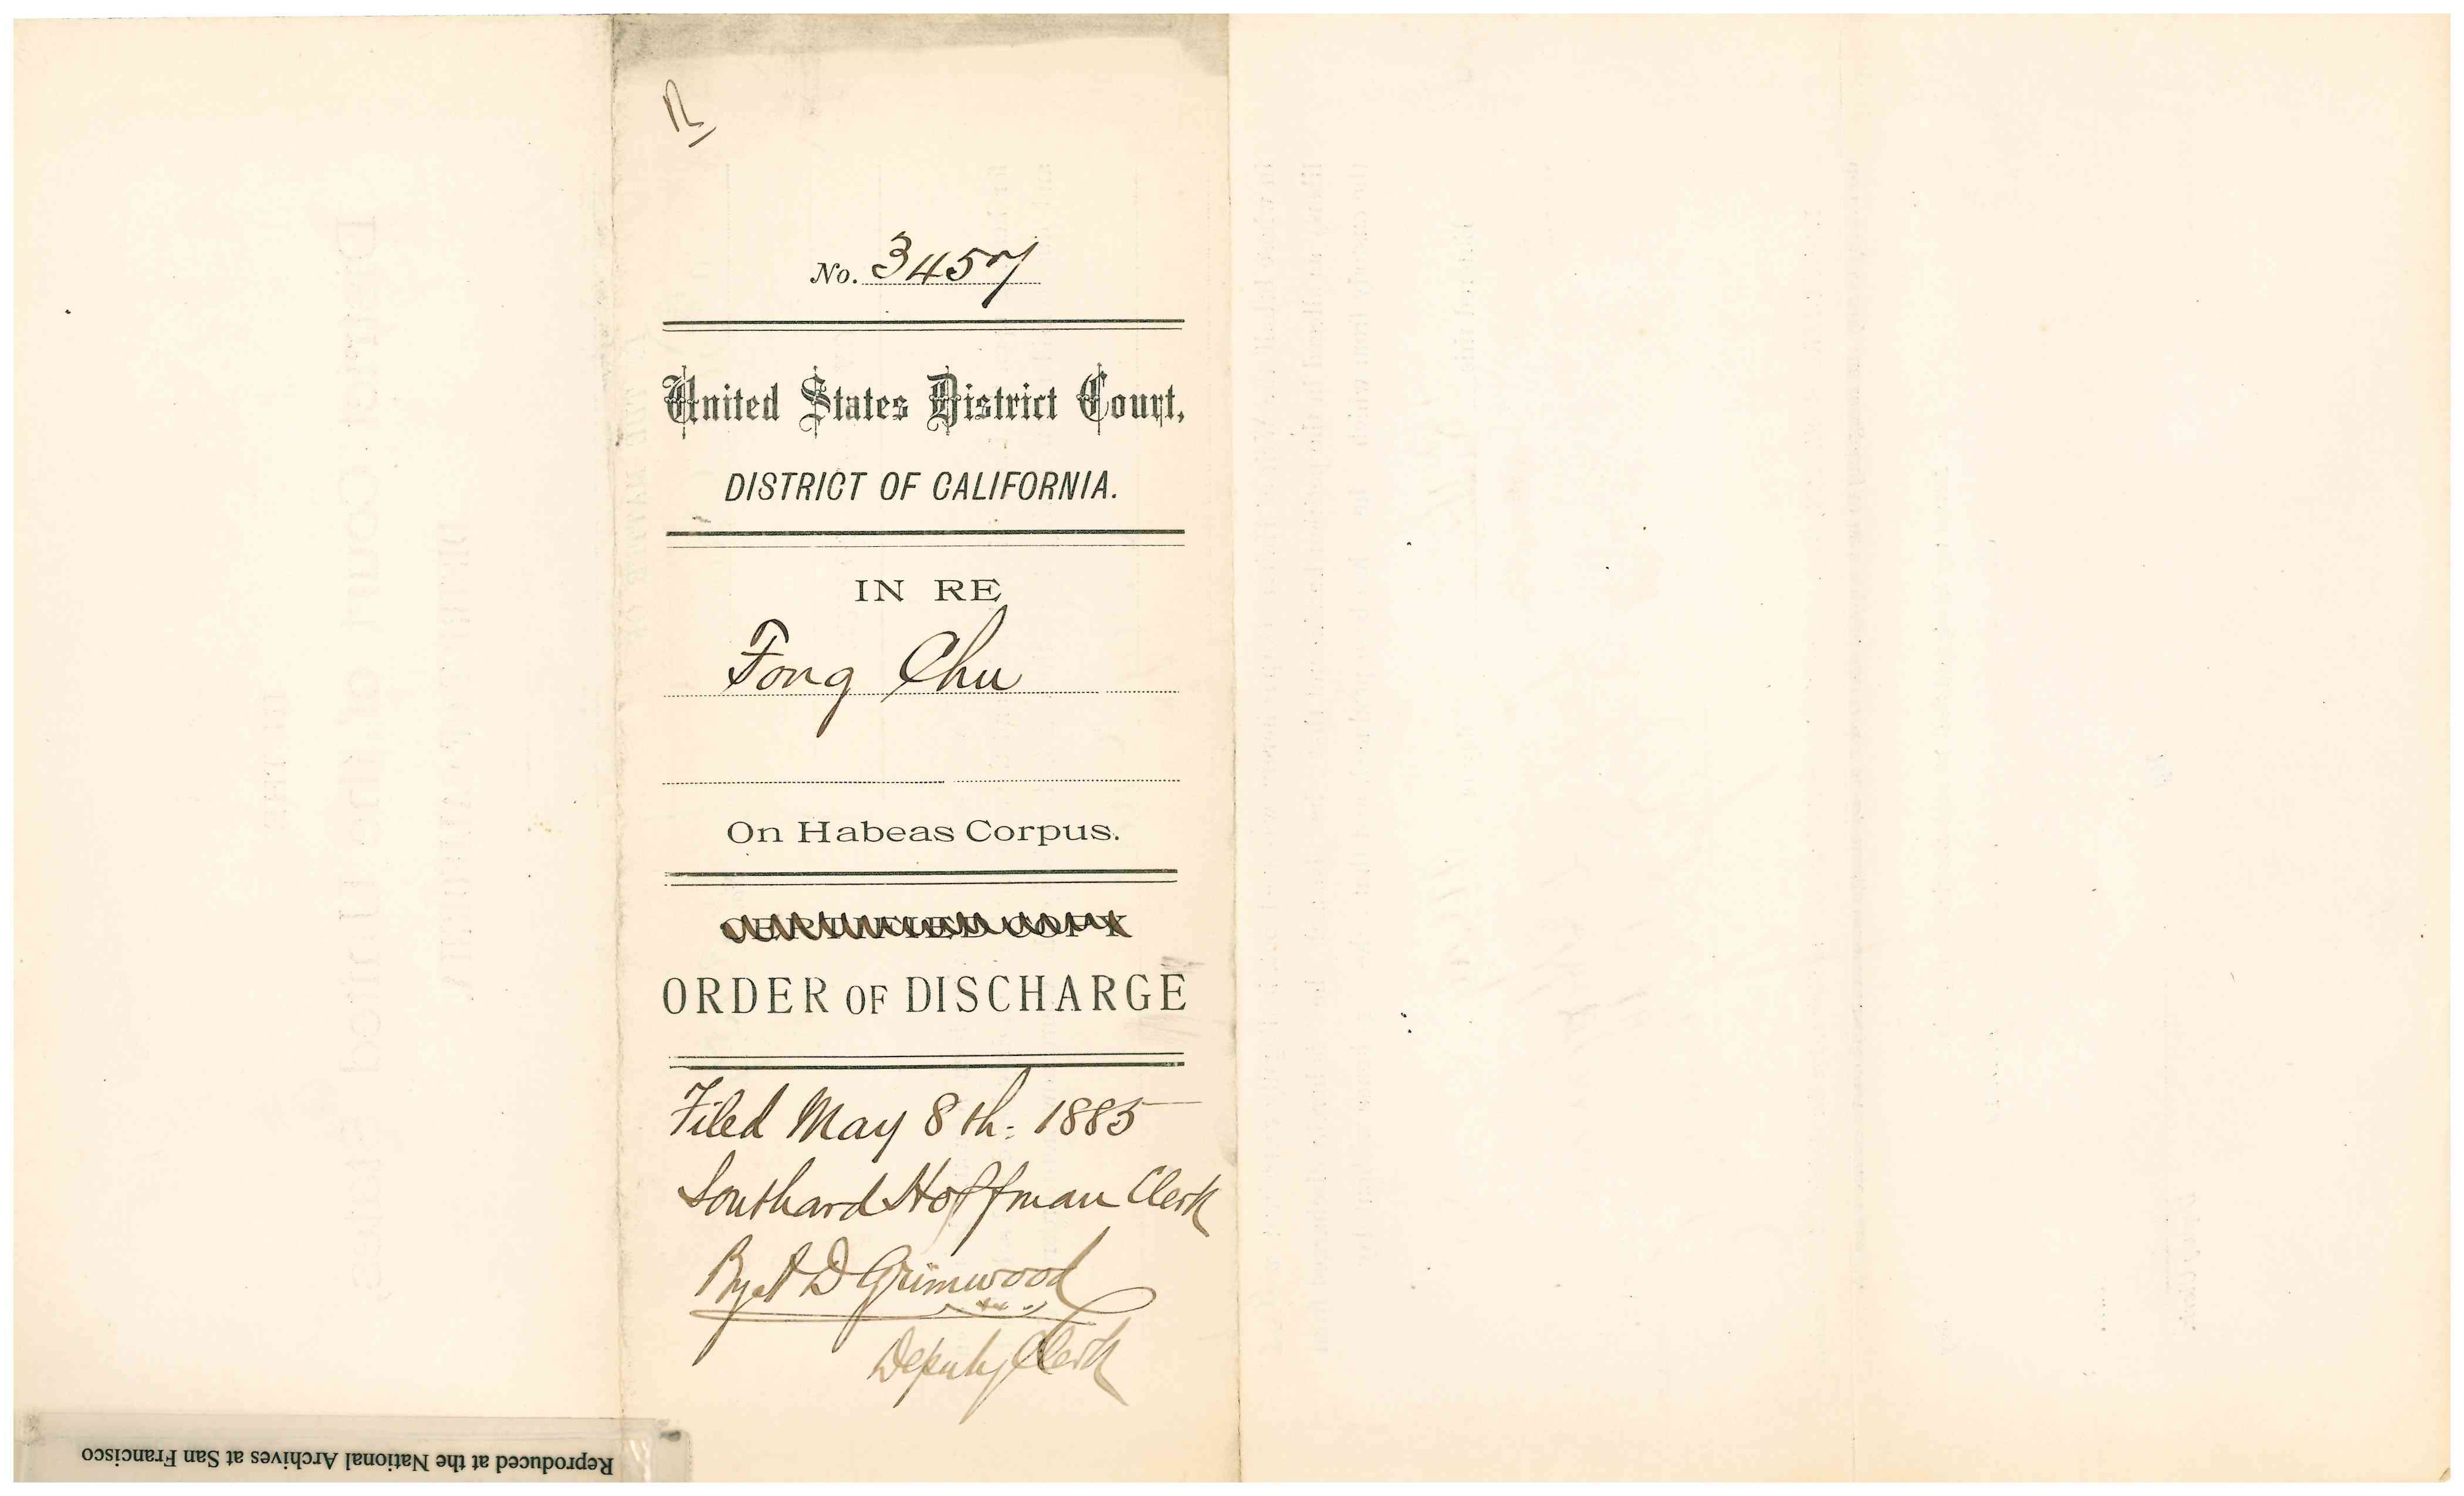 R
No. 3457
United States District Court,
DISTRICT OF CALIFORNIA.
IN RE
Fong Chu
On Habeas Corpus.
CERTIFIED COPY
ORDER OF DISCHARGE
Filed May 8th: 1885
Southard Hoffman Clerk
By D Grimwood
Deputy Clerk
Reproduced at the National Archives at San Francisco